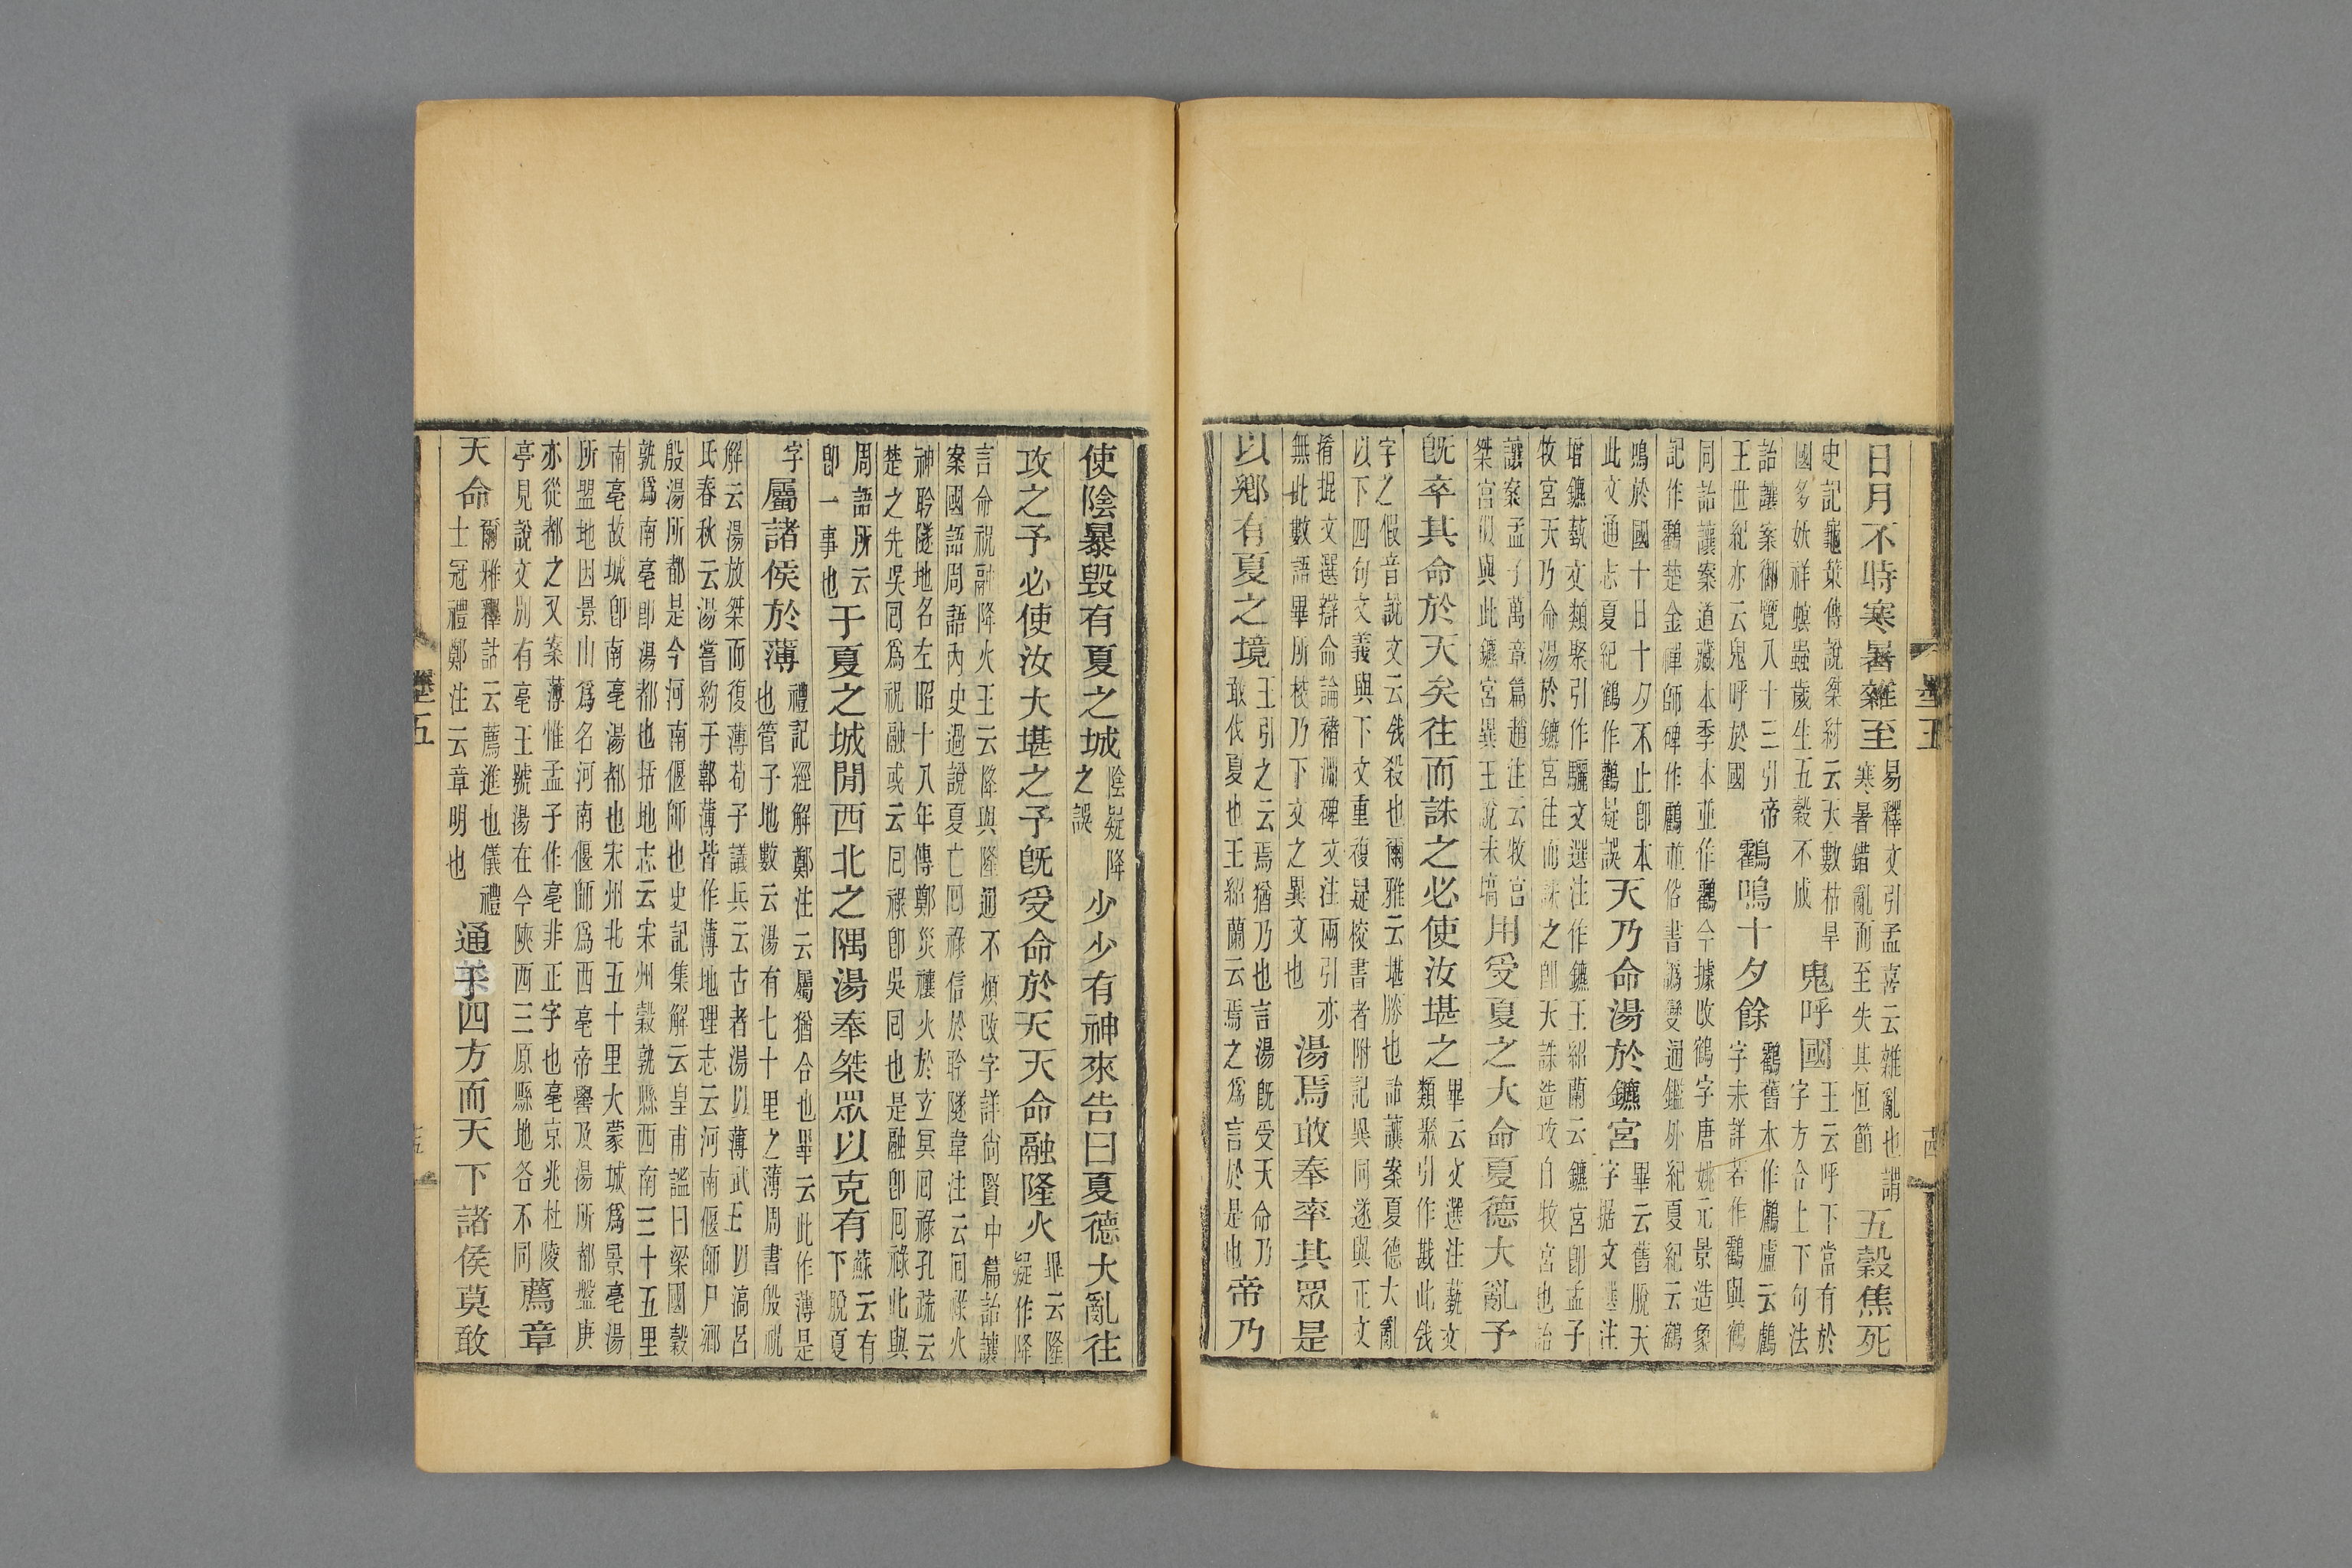 墨五
日月不時寒暑雜至易釋文引孟喜云雜亂也謂寒暑錯亂而至失其恒節五穀焦死
史記龜策傳說桀紂云天數枯旱國多妖祥螟蟲歲生五穀不成鬼呼國王云呼下當有於字方合上下句法
詒讓案御覽八十三引帝王世紀亦云鬼呼於國鸖鳴十夕餘鸖舊本作鸕盧云鸕字未詳若作鸖與鶴
同詒讓案道藏本季本並作鸖今據改鶴字唐姚元景造象記作鸖楚金禪師碑作鸖並俗書譌變通鑑外紀夏紀云鶴
鳴於國十日十夕不止卽本此文通志夏紀鶴作鸛疑誤天乃命湯於鑣宮畢云舊脫天字据文選注
增鑣藝文類聚引作驪文選注作鑣王紹蘭云鑣宮卽孟子牧宮天乃命湯於鑣宮往而誅之卽天誅造攻自牧宮也詒
讓案孟子萬章篇趙注云牧宮桀宮似與此鑣宮異王說未塙用受夏之大命夏德大亂予
旣卒其命於天矣往而誅之必使汝堪之畢云文選注藝文類聚引作戡此𢦟
字之假音說文云𢦟殺也爾雅云堪勝也詒讓案夏德大亂以下四句文義與下文重複疑校書者附記異同遂與正文
淆掍文選辯命論褚淵碑文注兩引亦無此數語畢所校乃下文之異文也湯焉敢奉率其眾是
以鄉有夏之境王引之云焉猶乃也言湯旣受天命乃敢伐夏也王紹蘭云焉之爲言於是也帝乃
使陰暴毀有夏之城陰疑降之誤少少有神來告曰夏德大亂往
攻之予必使汝大堪之予旣受命於天天命融隆火畢云隆疑作降
言命祝融降火王云降與隆通不煩改字詳尚賢中篇詒讓案國語周語內史過說夏亡囘祿信於聆隧韋注云囘祿火
神聆隧地名左昭十八年傳鄭災禳火於玄冥囘祿孔疏云楚之先吳囘爲祝融或云囘祿卽吳囘也是融卽囘祿此與
周語所云卽一事也于夏之城閒西北之隅湯奉桀眾以克有蘇云有下脫夏
字屬諸侯於薄禮記經解鄭注云屬猶合也畢云此作薄是也管子地數云湯有七十里之薄周書殷祝
解云湯放桀而復薄荀子議兵云古者湯以薄武王以滈呂氏春秋云湯嘗約于郼薄皆作薄地理志云河南偃師尸鄉
殷湯所都是今河南偃師也史記集解云皇甫謐曰梁國穀孰爲南亳卽湯都也括地志云宋州穀孰縣西南三十五里
南亳故城卽南亳湯都也宋州北五十里大蒙城爲景亳湯所盟地因景山爲名河南偃師爲西亳帝嚳及湯所都盤庚
亦從都之又案薄惟孟子作亳非正字也亳京兆杜陵亭見說文別有亳王號湯在今陝西三原縣地各不同薦章
天命爾雅釋詁云薦進也儀禮士冠禮鄭注云章明也通于四方而天下諸侯莫敢
墨五